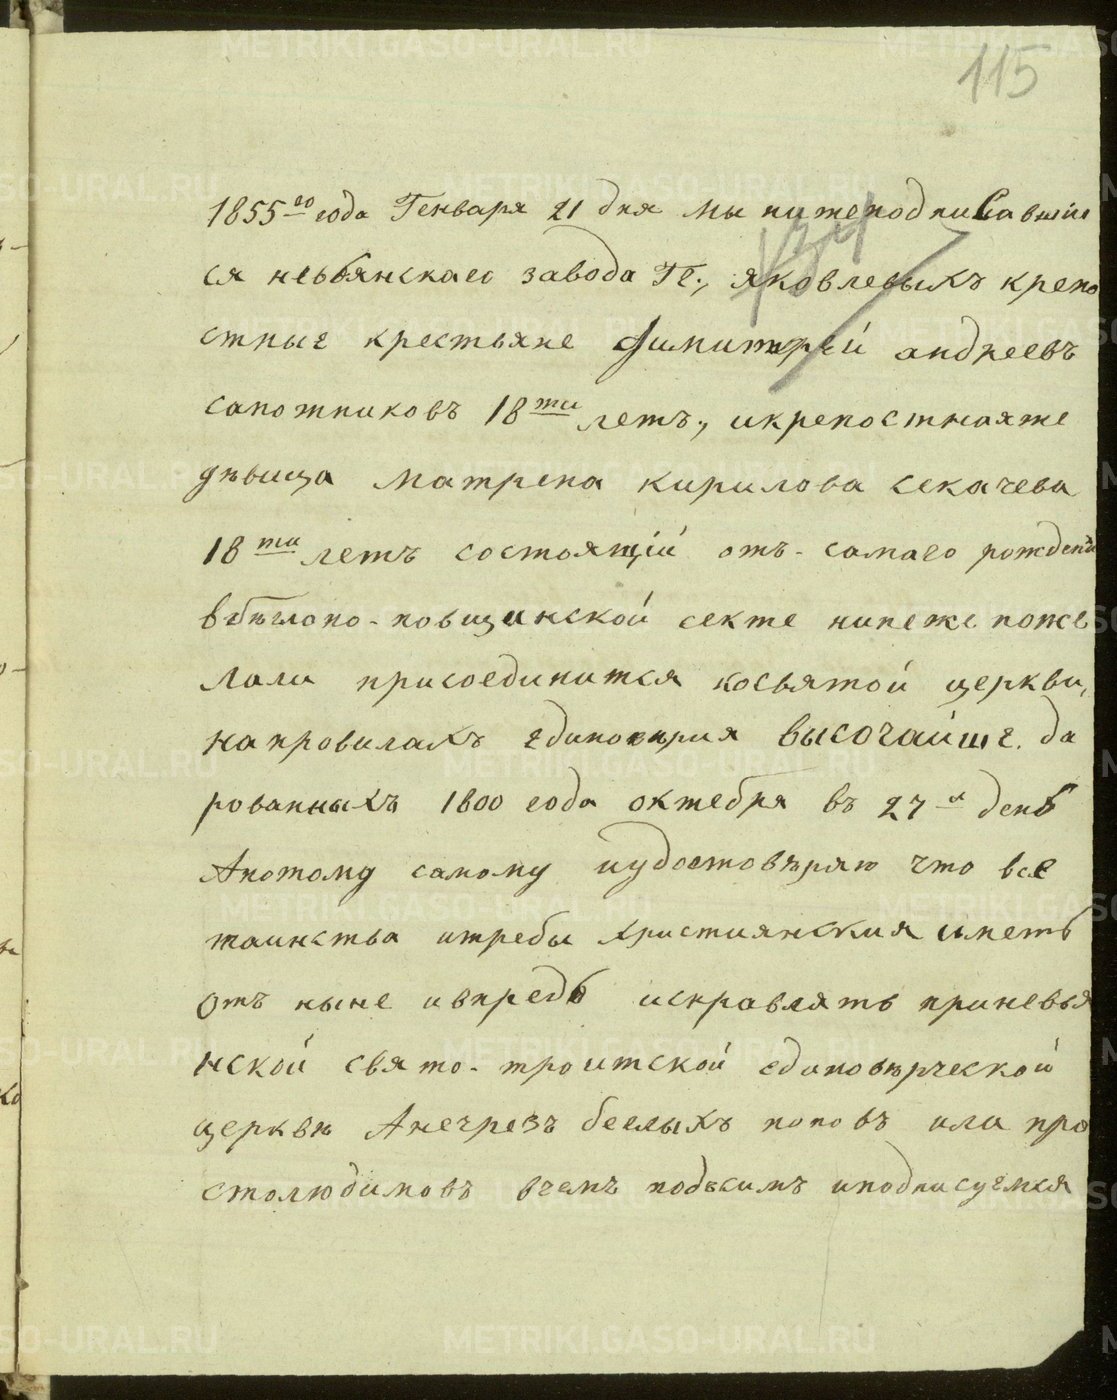 115
134
1855го года Генваря 21 дня мы нижеподписавшіи
ся невьянскаго завода Гг., яковлевыхъ крепо
стные крестьяне Димитрей андреевъ
сапожниковъ 18ти летъ, икрепостнаяже
дѣвица Матрена кирилова секачева
18ти летъ состоящіи отъ-самаго рожденія
вбѣглопо-повщинской секте нынеже поже
лали присоединится косвятой церкви,
направилахъ единоверия высочайше да
рованныхъ 1800 года октебря въ 27й день
Апотому самому иудостовѣряю что все
таинства итребы християнския иметь
отъ ныне ивпредь исправлять приневья
нской свято-троитской единовѣрческой
церкви Анечрезъ беглыхъ поповъ или про
столюдиновъ вчемъ подвсимъ иподписуемся
METRIKI.GASO-URAL.RU